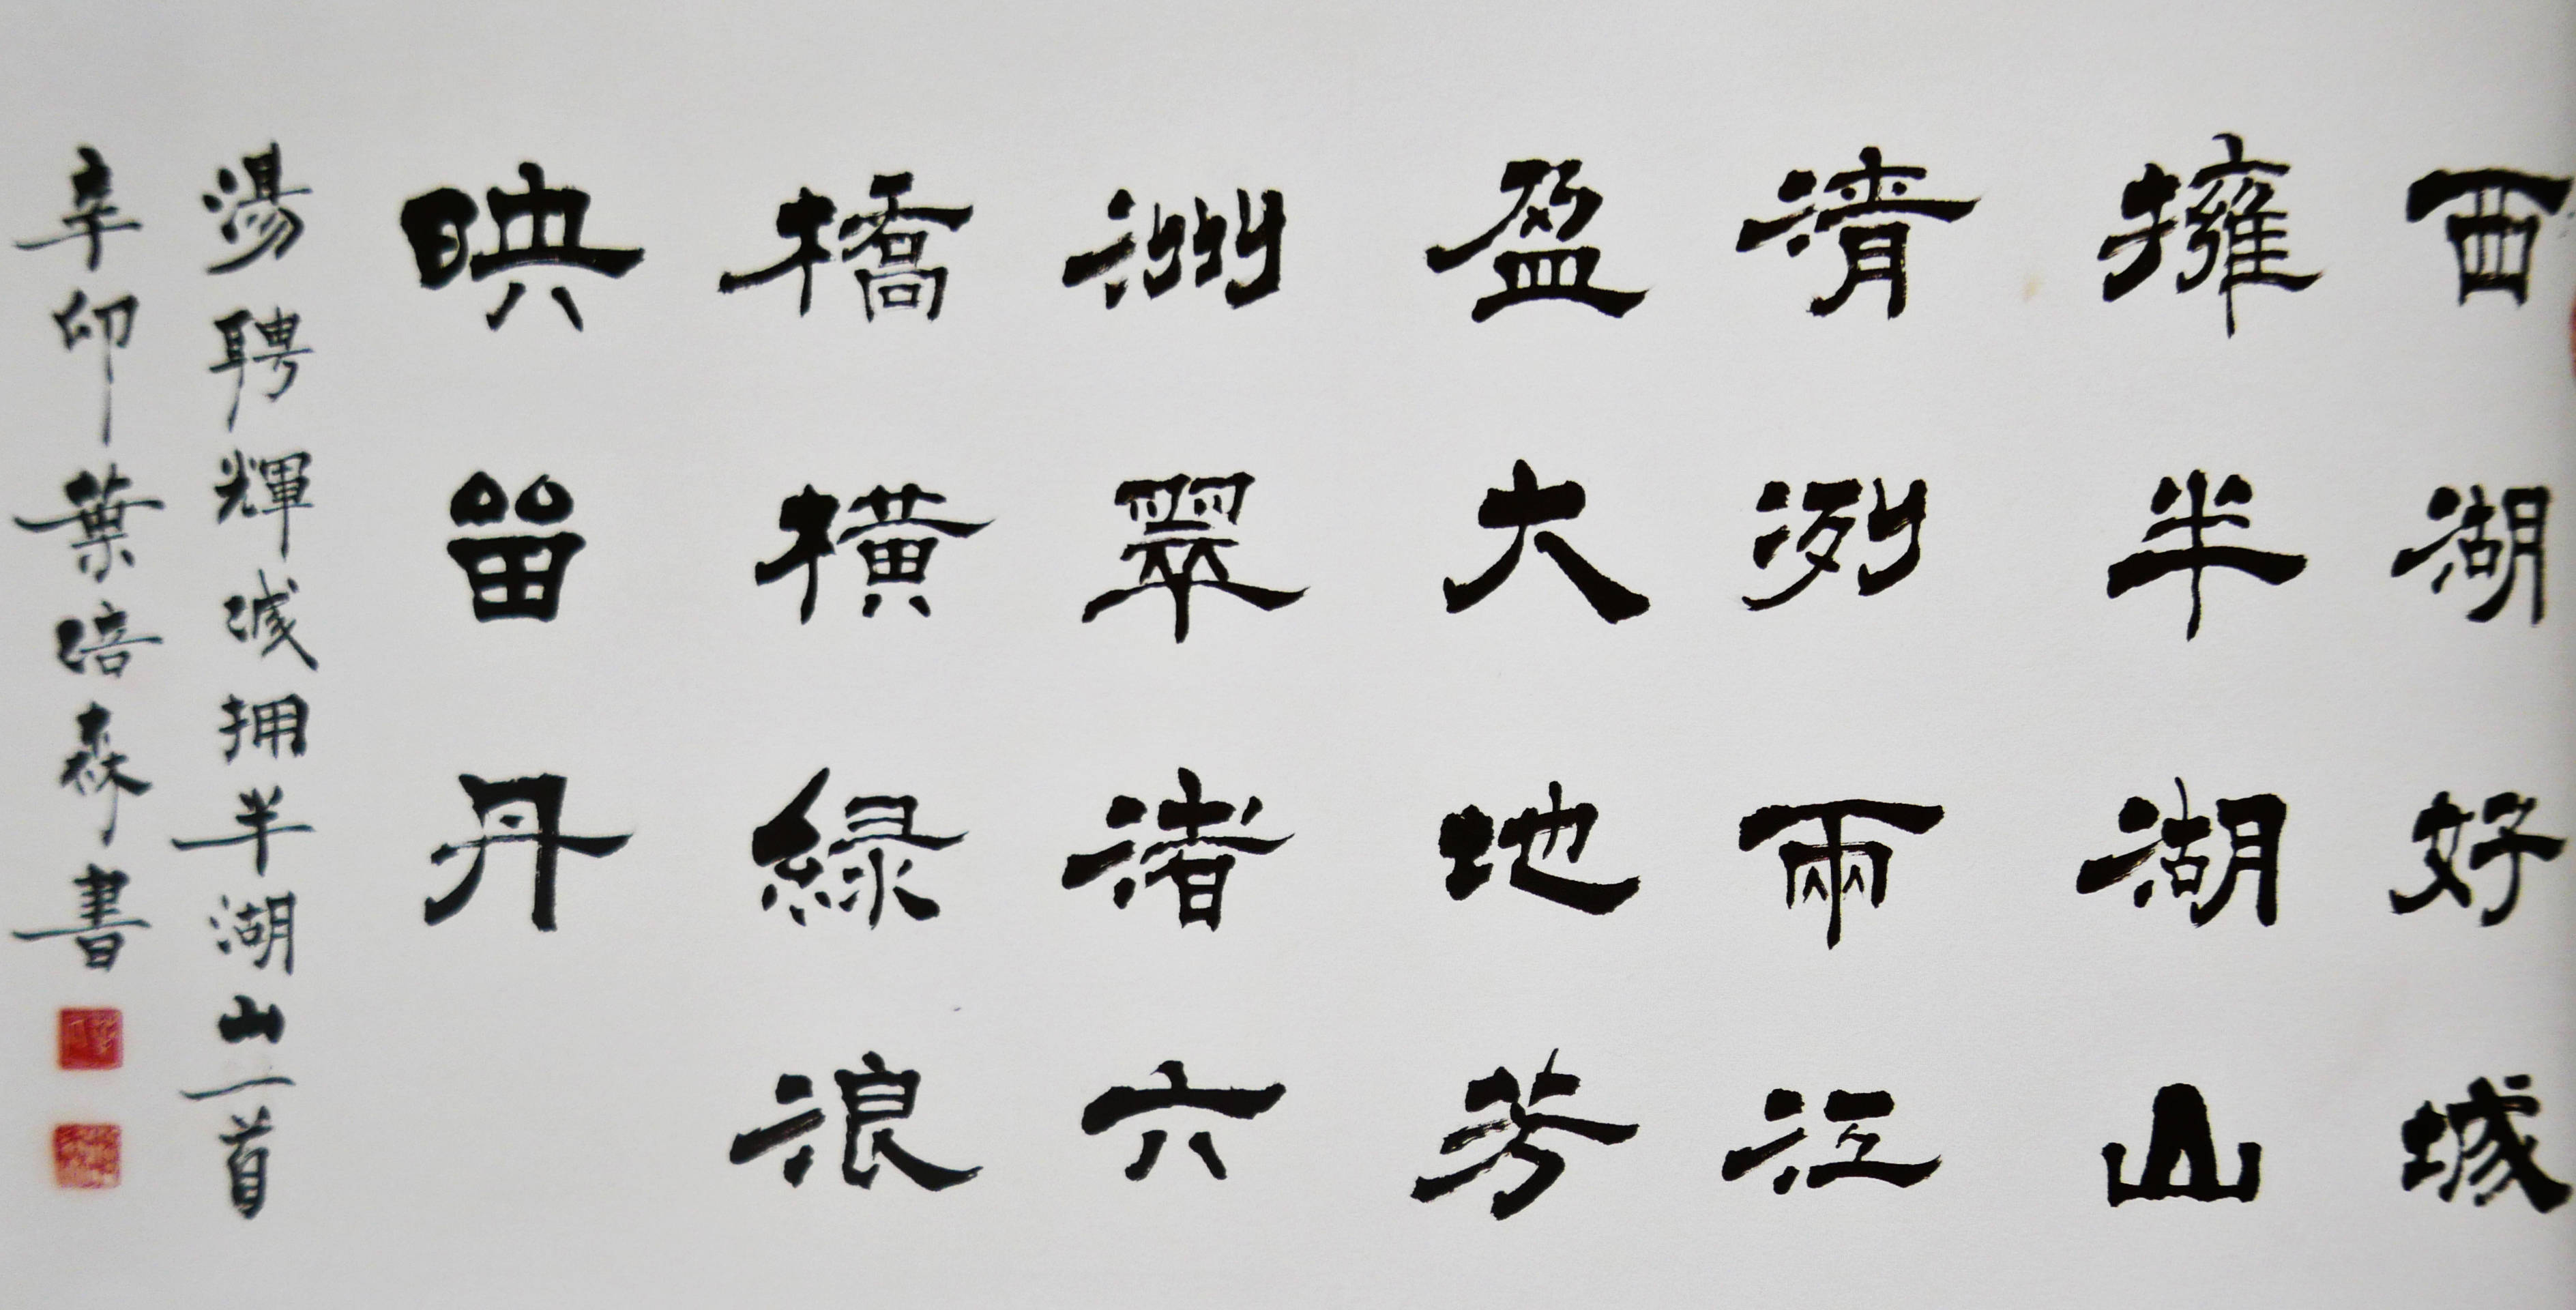 西湖好城
擁半湖山
清冽兩江
盈大地芳
洲翠渚六
橋橫緑浪
映留丹
湯聘輝城拥半湖山一首
辛卯葉培森書